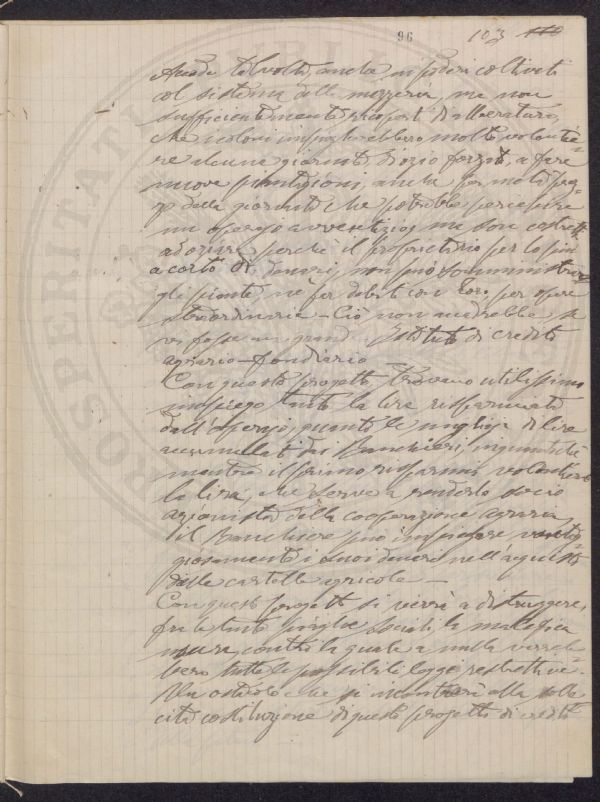 96 103
Accade talvolta, anche in poderi coltivati
col sistema della mezzeria, ma non
sufficientemente ricoperti di alberatura,
che i coloni impiegherebbero molto volentie-
re alcune giornate d'ozio forzato, a fare
nuove piantagioni, anche per metà prez-
zo della giornata che potrebbe percepire
un operajo avventizio, ma son costretti
ad oziare perchè il proprietario per lo più
a corto di denari, non può somministrare
gli piante, nè far debito con loro per opere
straordinarie - Ciò non accadrebbe se
vi fosse un grande Istituto di credito
agrario-fondiario
Con questo progetto, trovano utilissimo
impiego tanto la lira risparmiata
dall'operajo, quanto le migliaja di lire
accumulate dai Banchieri, inquantoche
mentre il primo risparmia volentieri
la lira, che serve a renderlo socio
azionista della cooperazione agraria,
il Banchiere può impiegare vantag-
giosamente i suoi denari nell'acquisto
delle cartelle agricole -
Con questo progetto si verrà a distruggere,
fra le tante piaghe sociali, la malefica
usura, contro la quale a nulla varreb-
bero tutte le possibili leggi restrittive.
Un ostacolo che si incontrerà alla solle-
cita costituzione di questo progetto di credito